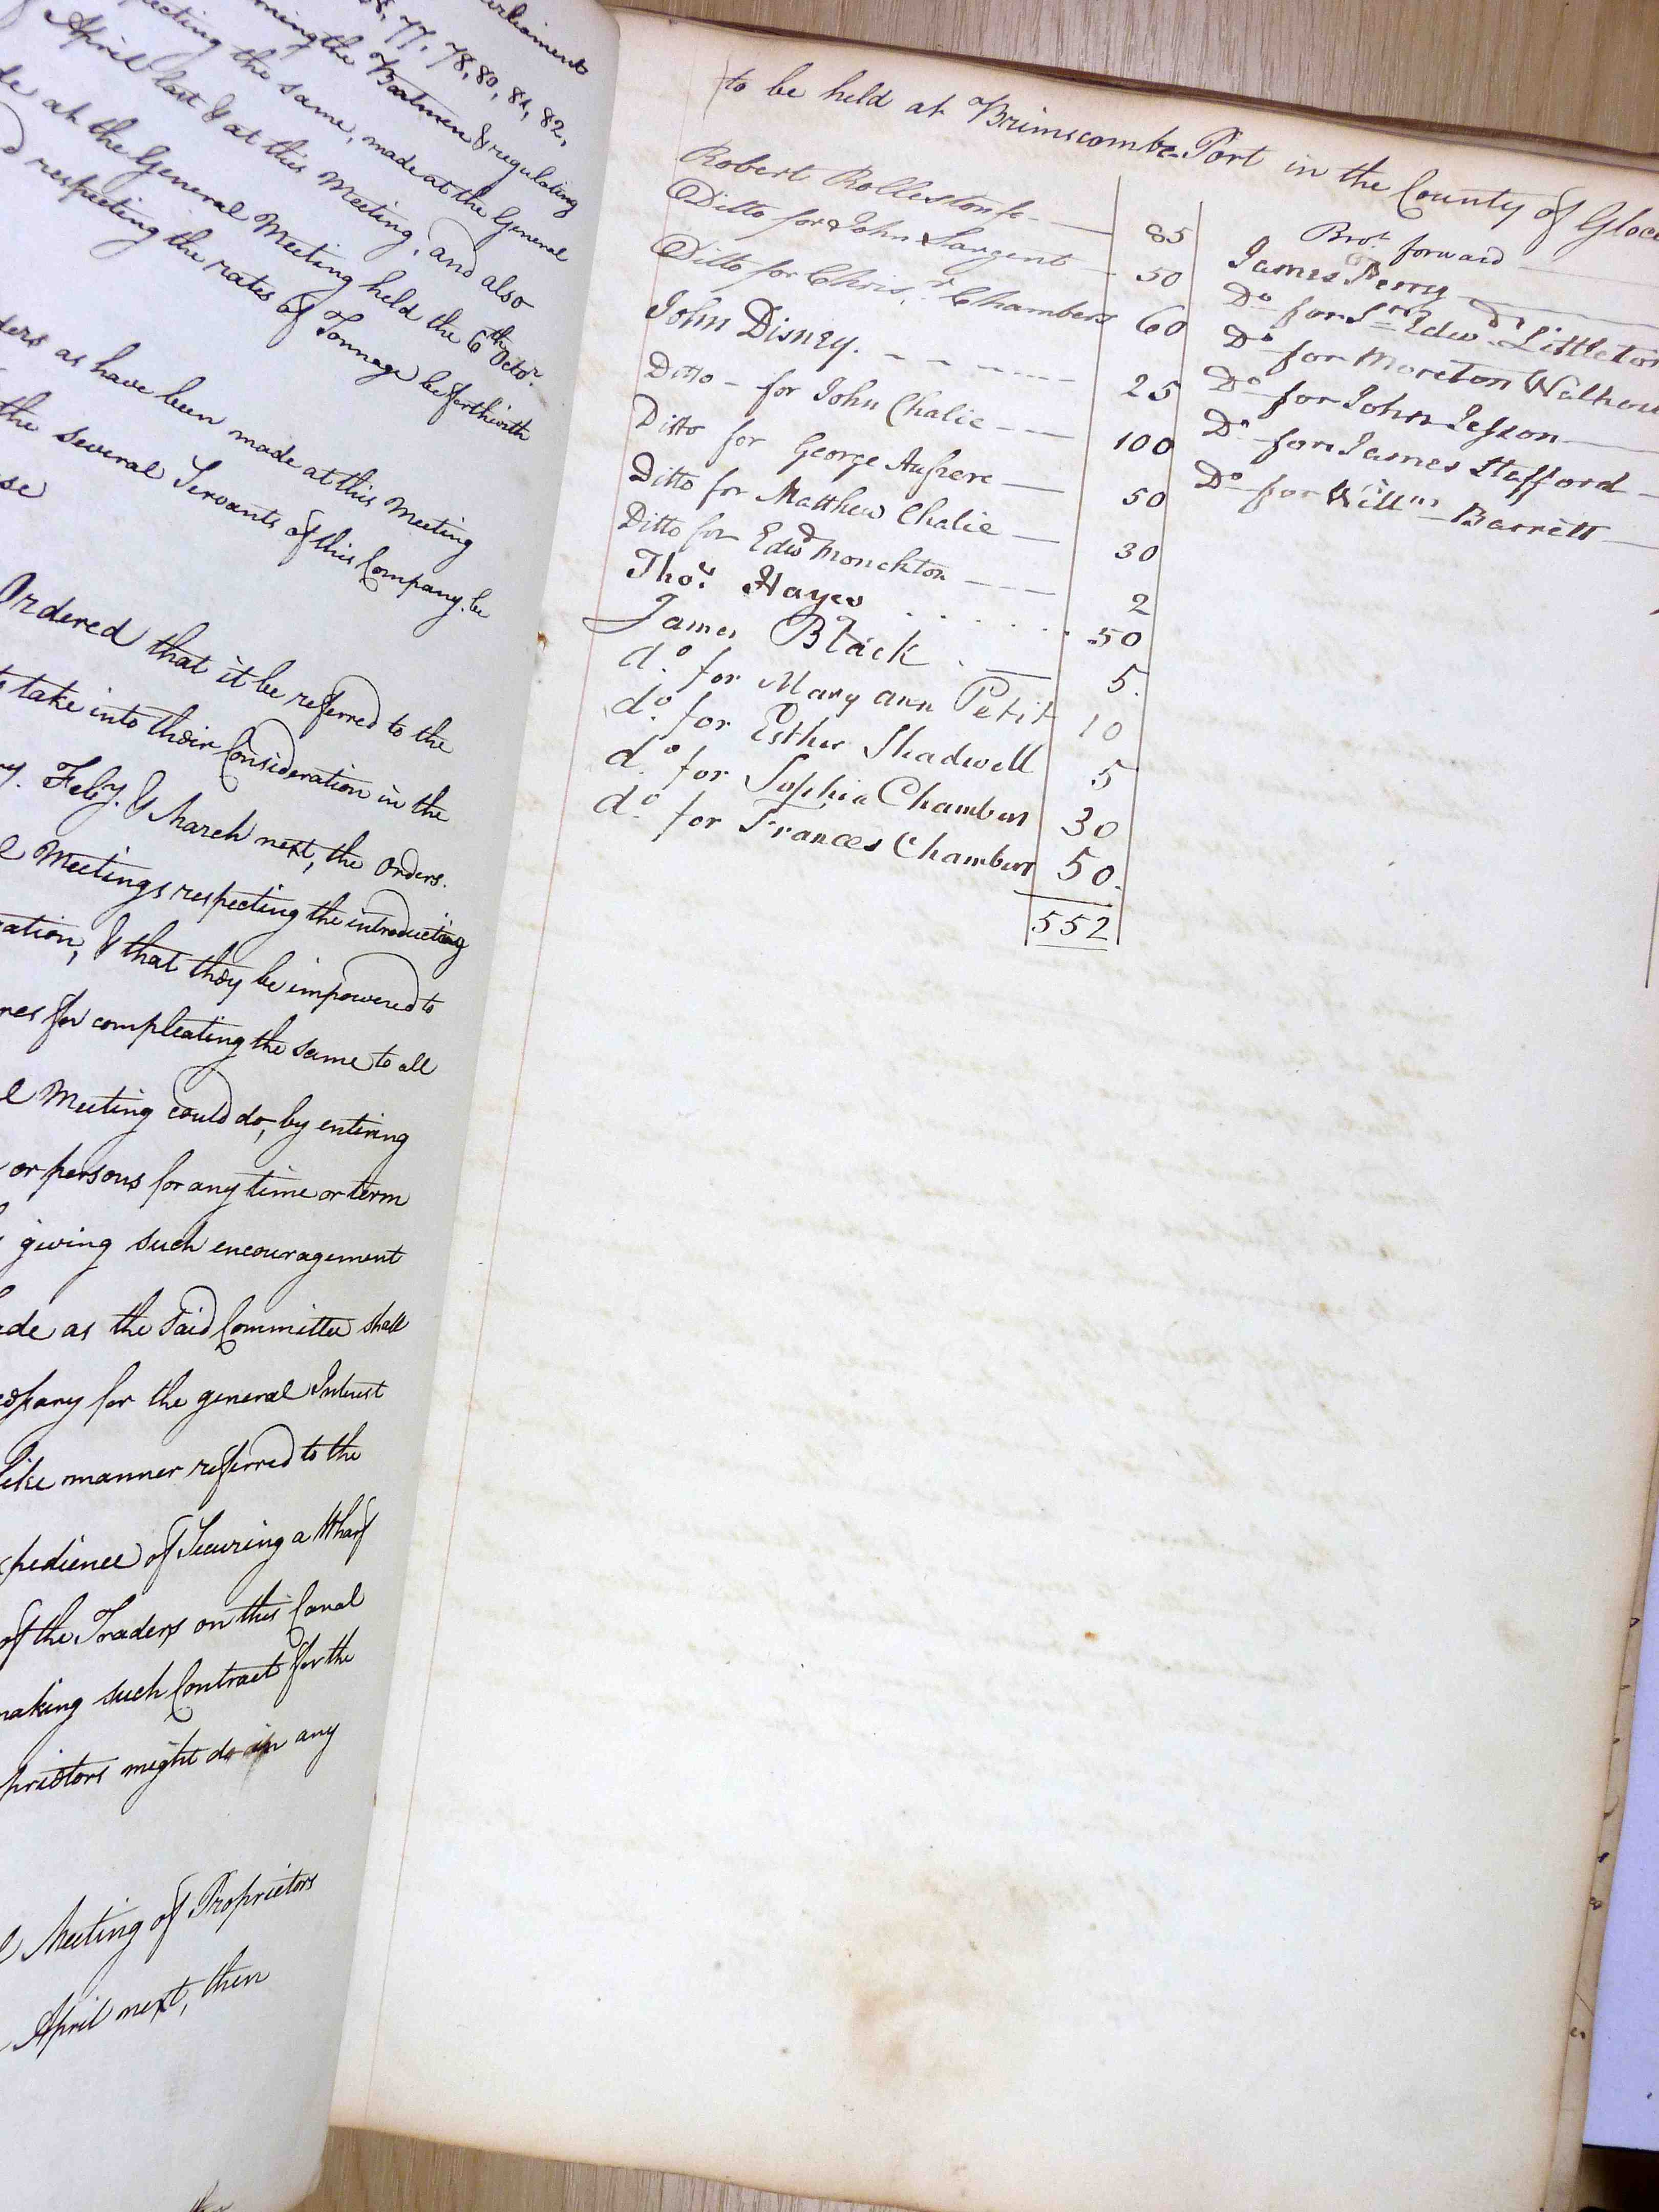 arliament
77, 78, 80, 81, 82,
ming the Boatmen & regulating
pecting the same, made at the General
April last & at this Meeting, and also
de at the General Meeting held the 6th Octor.
respecting the rates of Tonnage be forthwith
ders as have been made at this Meeting
the several Servants of this Company be
se
Ordered that it be referred to the
to take into their Consideration in the
ry. Feby. & March next, the Orders.
l Meetings respecting the introducting
ration, & that they be impowered to
res for compleating the same to all
l Meeting could do, by entering
or persons for any time or term
giving such encouragement
de as the said Committee shall
cessary for the general Interest
like manner referred to the
xpedience of Securing a Wharf
of the Traders on this Canal
making such Contract for the
prietors might do in any
l Meeting of Proprietors
April next, then
to be held at Brimscombe Port in the County of Gloce
Robert Rolleston 85
Ditto for John Sargent 50
Ditto for Chrisr. Chambers 60
John Disney. 25
Ditto - for John Chalie 100
Ditto for George Aufrere 50
Ditto for Matthew Chalie 30
Ditto for Edwd Monckton 2
Thos. Hayes 50
James Black 5.
do. for Mary ann Petit 10
do. for Esther Shadwell 5
do. for Sophia Chambers 30
do. for Frances Chambers 50.
552
Brot. forward
James Perry
Do for Sr. Edwd. Littleton
Do for Moreton Walhou
Do for John Jesson
Do for James Stafford
Do for Willm Barrett